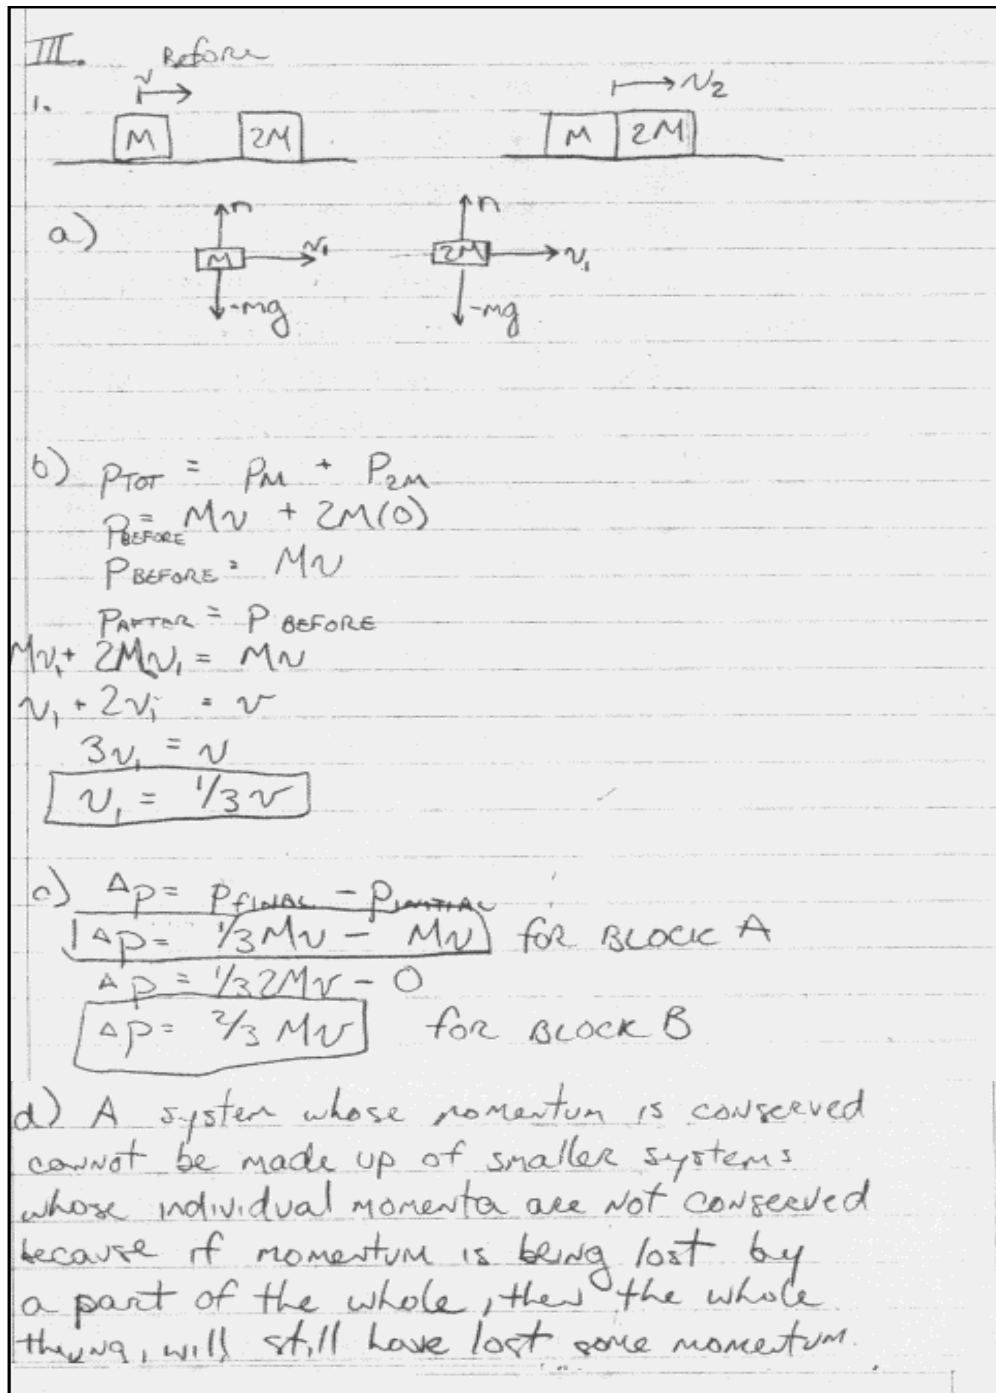 III. Before
1.
v
M 2M
v2
M 2M
a)
n
M v1
-mg
n
2M v1
-mg
b) PTOT = PM + P2M
PBEFORE = Mv + 2M(0)
PBEFORE = Mv
PAFTER = P BEFORE
Mv1 + 2Mv1 = Mv
v1 + 2v1 = v
3v1 = v
v1 = 1/3 v
c) Δp = PFINAL - PINITIAL
Δp = 1/3 Mv - Mv for BLOCK A
Δp = 1/3 2Mv - 0
Δp = 2/3 Mv for BLOCK B
d) A system whose momentum is conserved
cannot be made up of smaller systems
whose individual momenta are not conserved
because if momentum is being lost by
a part of the whole, then the whole
thing, will still have lost some momentum.